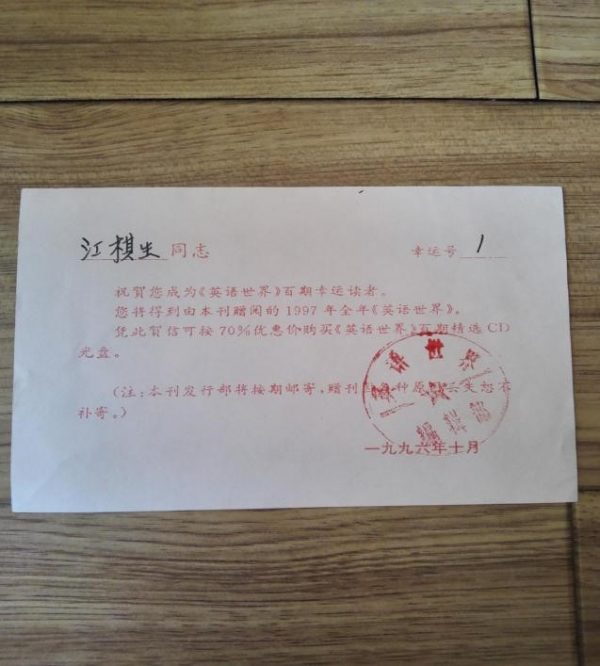 江棋生同志 幸运号 1
祝賀您成为《英语世界》百期幸运读者。
您将得到由本刊赠阅的1997年全年《英语世界》。
凭此賀信可按70%优惠价购买《英语世界》百期精选CD
光盘。
(注:本刊发行部将按期邮寄,赠刊 种原 丢失恕不
补寄。)
英语世界
编辑部
一九九六年十月